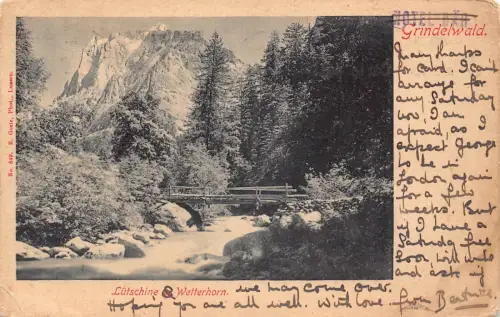 HOTEL BÄR
Grindelwald.
Many thanks
for card. I can't
arrange for
any Saturday
now, I am
afraid, as I
expect George
to be in
London again
for a few
weeks. But
if I have a
Saturday free
soon, I will write
and ask if
we may come over.
Hoping you are all well. With love from Bertrice.
Lütschine & Wetterhorn.